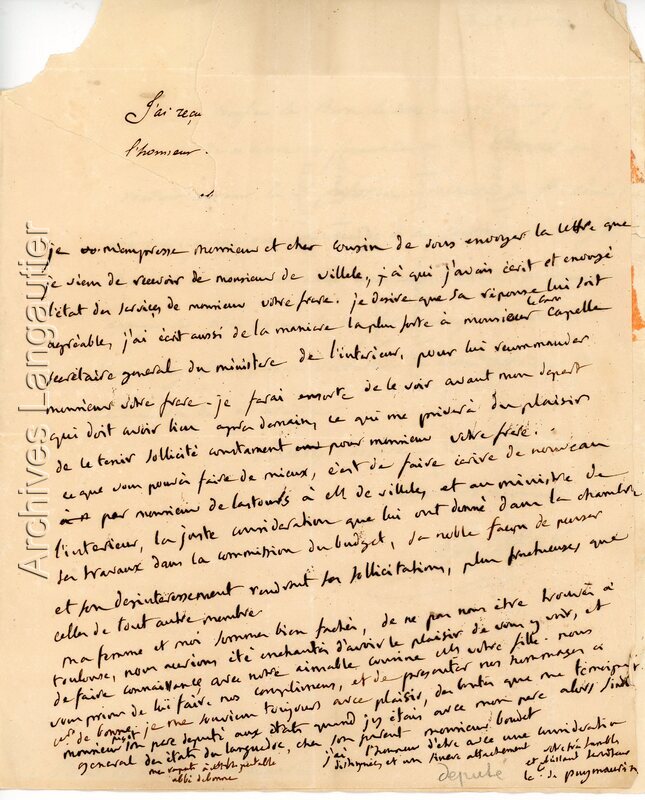 J'ai reçu
l'honneur.
je m'empresse monsieur et cher cousin de vous envoyer la lettre que
je viens de recevoir de monsieur de villele, à qui j'avais écrit et envoyé
l'état des services de monsieur votre frere. je desire que sa réponse lui soit
agréable, j'ai écrit aussi de la maniere la plus forte à monsieur le baron Capelle
secrétaire general du ministere de l'interieur, pour lui recommander
monsieur votre frere - je farai ensorte de le voir avant mon depart
qui doit avoir lieu apres demain, ce qui me privera du plaisir
de le tenir sollicité constament pour monsieur votre frere.
ce que vous pouvés faire de mieux, c'est de faire écrire de nouveau
par monsieur de lastours à M de villele, et au ministre de
l'interieur, la juste consideration que lui ont donné dans la chambre
ses travaux dans la commission du budget, sa noble façon de penser
et son desinteressement rendront ses sollicitations, plus fructueuses que
celles de tout autre membre
ma femme et moi sommes bien fachés, de ne pas nous être trouvés à
toulouse, nous aurions été enchantés d'avoir le plaisir de vous y voir, et
de faire connaissance avec notre aimable cousine et votre fille. nous
vous prions de lui faire nos complimens, et de presenter nos hommages à
de bonne, je me souviens toujours avec plaisir, des bontés que me témoignait
monsieur son pere deputé aux états quand j'y étais avec mon pere alors
general des états du languedoc, chés son parent monsieur boudet
mes respects à
abbé de bonne
j'ai l'honneur d'etre avec une consideration
distinguée et un sincere attachement
votre très humble
et obéissant serviteur
de puymaurin
deputé
Archives Langautier